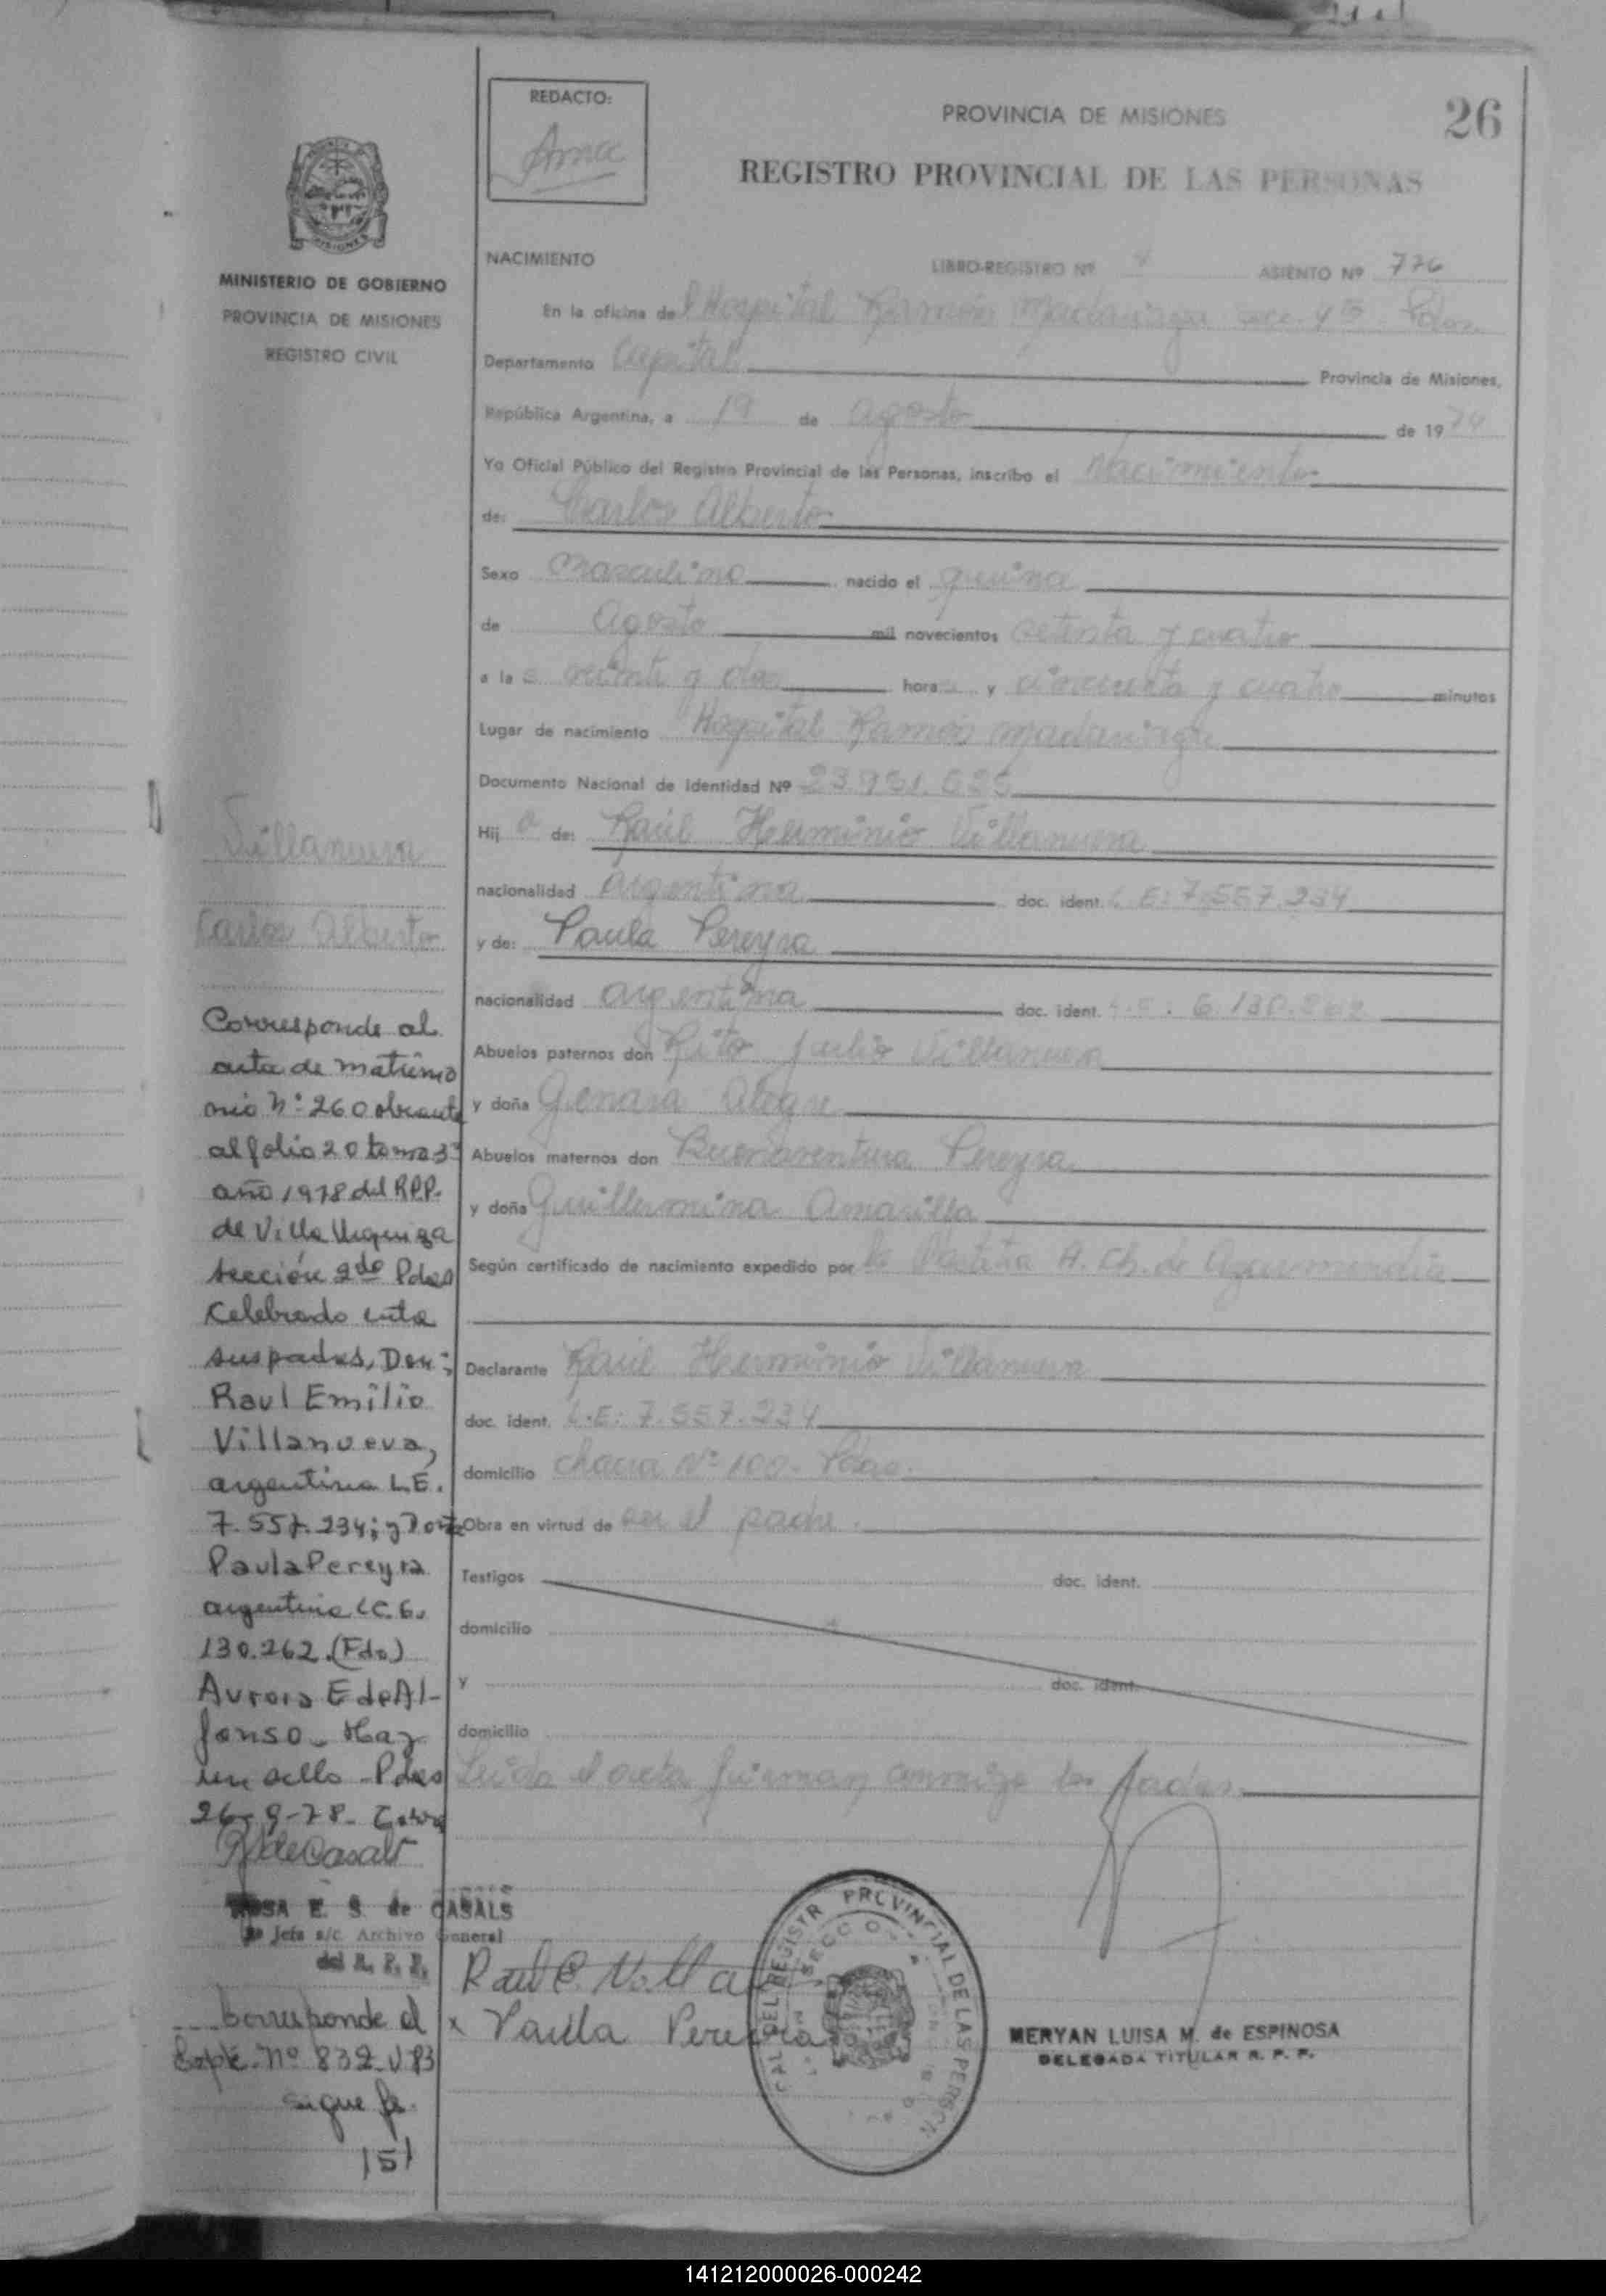 26
REDACTO:
PROVINCIA DE MISIONES
REGISTRO PROVINCIAL DE LAS PERSONAS
MISIONES
MINISTERIO DE GOBIERNO
PROVINCIA DE MISIONES
REGISTRO CIVIL
NACIMIENTO LIBRO-REGISTRO Nº ASIENTO Nº 776
En la oficina del Hospital Ramón Madariaga secc. 4º Pdas.
Departamento Capital Provincia de Misiones,
República Argentina, a 19 de agosto de 1974
Yo Oficial Público del Registro Provincial de las Personas, inscribo el Nacimiento
de: Carlos Alberto
Sexo masculino nacido el quince
de agosto mil novecientos setenta y cuatro
a las veinte y dos horas y cincuenta y cuatro minutos
Lugar de nacimiento Hospital Ramón Madariaga
Documento Nacional de Identidad Nº 23.931.625
Hijo de: Raúl Herminio Villanueva
nacionalidad argentina doc. ident. L.E: 7.557.234
y de: Paula Pereyra
nacionalidad argentina doc. ident. 6.130.262
Abuelos paternos don Rito Julio Villanueva
y doña Genara Alegre
Abuelos maternos don Buenaventura Pereyra
y doña Guillermina Amarilla
Según certificado de nacimiento expedido por la Partera A. Ch. de
Declarante Raúl Herminio Villanueva
doc. ident. L.E: 7.557.234
domicilio chacra Nº 100- Pdas.
Obra en virtud de ser el padre.
Testigos doc. ident.
domicilio
y doc. ident.
domicilio
Leida el acta firman conmigo los padres
Villanueva
Carlos Alberto
Corresponde al
acta de matrimo
nio Nº 260 obrante
al folio 20 tomo 3º
año 1978 del R.P.P.
de Villa Urquiza
sección 2da Pdas
Celebrado entre
sus padres, Don:
Raul Emilio
Villanueva,
argentino L.E.
7.557.234; y Doña
Paula Pereyra
argentina L.C. 6.
130.262. (Fdo)
Aurora E de Al-
fonso. Hay
un sello - Pdas
26-9-78.
R de Casals
ROSA E. S. de CASALS
Jefa a/c. Archivo General
del R. P. P.
Corresponde al
Expte. Nº 832-V-83
sigue fs.
151
Raul E. Villa
x Paula Pereira
PROVINCIAL DE LAS PERSON
MERYAN LUISA M. de ESPINOSA
DELEGADA TITULAR R. P. P.
141212000026-000242